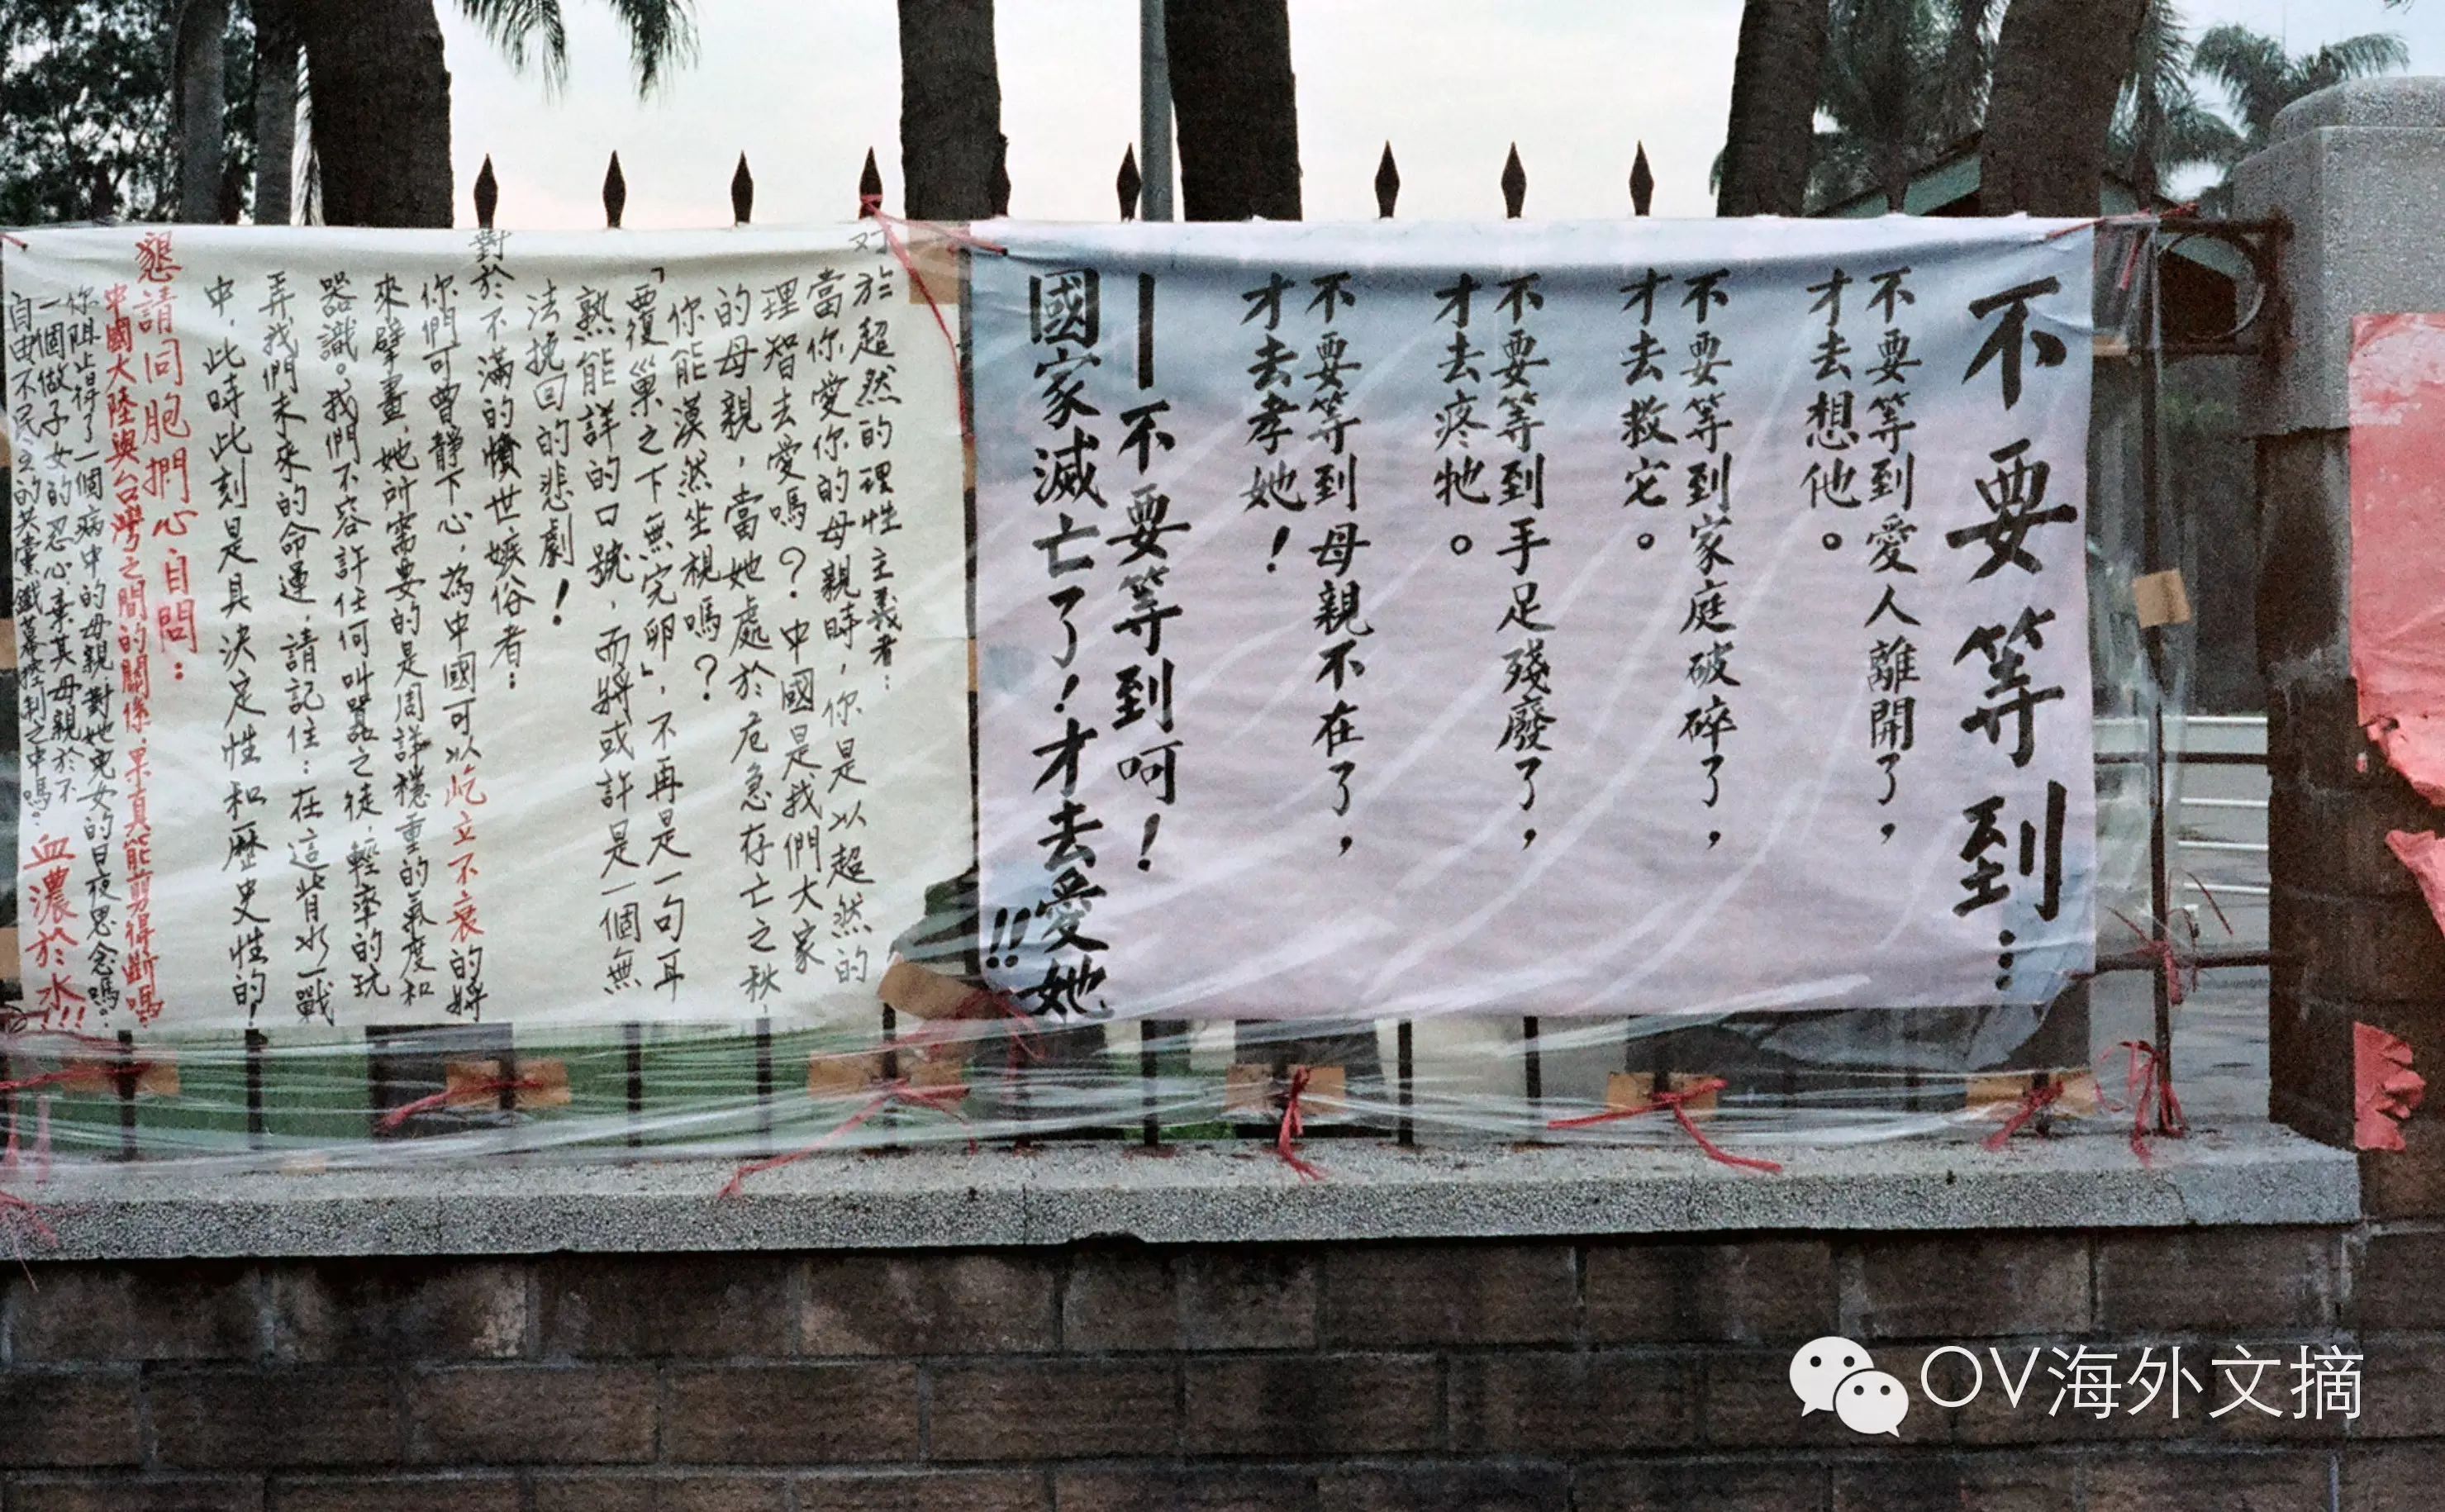 不要等到…
不要等到愛人離開了，
才去想他。
不要等到家庭破碎了，
才去救它。
不要等到手足殘廢了，
才去疼牠。
不要等到母親不在了，
才去孝她！
—不要等到呵！
國家滅亡了！才去愛她!!
对於超然的理性主義者：
當你愛你的母親時，你是以超然的
理智去愛嗎？中國是我們大家
的母親，當她處於危急存亡之秋，
你能漠然坐視嗎？
「覆巢之下無完卵」，不再是一句耳
熟能詳的口號，而將或許是一個無
法挽回的悲劇！
對於不滿的憤世嫉俗者：
你們可曾靜下心，為中國可以屹立不衰的將
來擘畫，她所需要的是周詳穩重的氣度和
器識。我們不容許任何叫囂之徒，輕率的玩
弄我們未來的命運，請記住：在這背水一戰
中，此時此刻是具決定性和歷史性的！
懇請同胞捫心自問：
中國大陸與台灣之間的關係，果真能剪得斷嗎？
你阻止得了一個病中的母親，對她兒女的日夜思念嗎？
一個做子女的忍心棄其母親於不
自由不民主的共黨鐵幕控制之中嗎？
血濃於水!!!
OV海外文摘